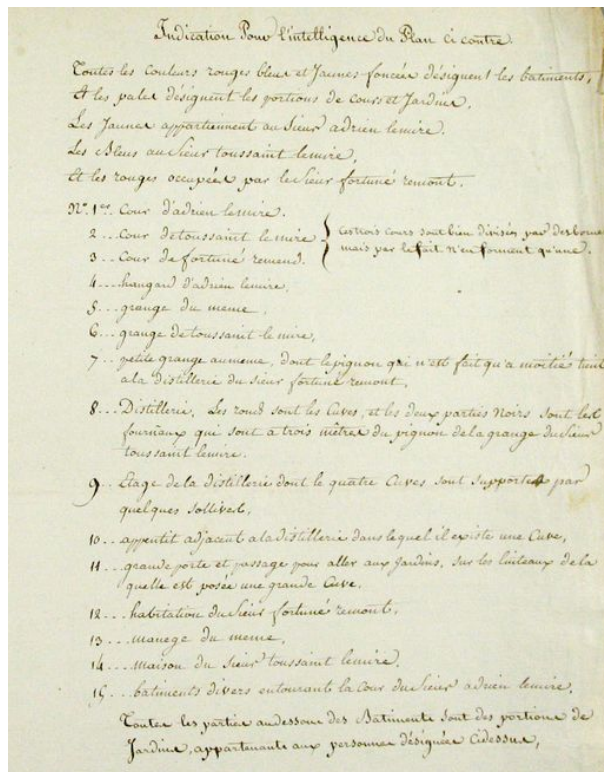 Indication Pour l'intelligence du Plan ci contre.
Toutes les couleurs rouges bleus et Jaunes foncées désignent les batiments,
Et les pales désignent les portions de cours et Jardins,
Les Jaunes appartiennent au Sieur adrien lemire.
Les Bleus au Sieur toussaint lemire,
Et les rouges occupées par le Sieur fortuné remont.
Nos. 1er.. Cour d'adrien lemire.
2 ... Cour de toussaint lemire
3 ... Cour de fortuné remond.
} ces trois cours sont bien divisées par des borne
mais par le fait n'en forment qu'une.
4 ... hangard d'adrien lemire,
5 ... grange du meme,
6 ... grange de toussaint lemire,
7 ... petite grange au meme, dont le pignon qui n'est fait qu'a moitié tient
a la distillerie du Sieur fortuné remont,
8 ... Distillerie, Les rond sont les Cuves, et les deux parties Noirs sont les
fournaux qui sont a trois mètres du pignon de la grange du Sieur
toussaint lemire.
9 .. Etage de la distillerie dont le quatre Cuves sont supportes par
quelques sollives,
10 .. appentit adjacent a la distillerie dans lequel il existe une Cuve,
11 ... grande porte et passage pour aller aux Jardins, sur les linteaux de la
quelle est posée une grande Cuve.
12 ... habitation du Sieur fortuné remont.
13 ... manege du meme,
14 .... maison du Sieur toussaint lemire,
15 ... batiments divers entourant la Cour du Sieur adrien lemire,
Toutes les partie au dessous des Batiments sont des portions de
Jardins, appartenante aux personnes désignées cidessus,